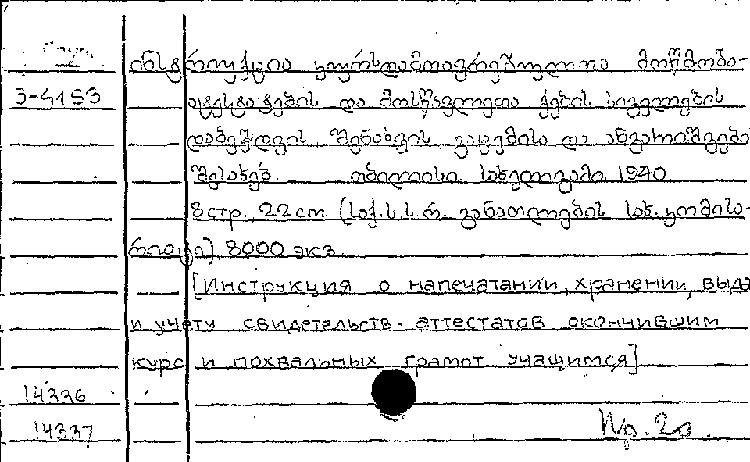 ინსტრუქცია კურსდამთავრებულთა მოწმობა-
3-4193 ატესტატების და მოსწავლეთა ქების სიგელების
დაბეჭდვის, შენახვის გაცემისა და ანგარიშგების
შესახებ თბილისი სახელგამი 1940
8 стр. 22 cm (საქ.ს.ს.რ. განათლების სახ. კომისა-
რიატი) 8000 экз.
[Инструкция о напечатании, хранении, выда
и учету свидетельств-аттестатов окончившим
курс и похвальных грамот учащимся]
14336
14337